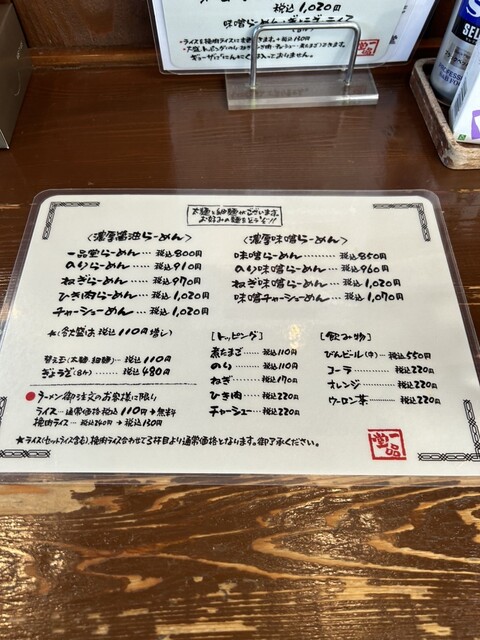 税込1,020円
味噌らーめん・ぎょうざ・ライス
太麺と細麺がございます。
お好みの麺をどうぞ!!
〈濃厚醤油らーめん〉
一品堂らーめん……税込800円
のりらーめん……税込910円
ねぎらーめん……税込970円
ひき肉らーめん…税込1,020円
チャーシューめん…税込1,020円
*(各大盛は税込110円増し)
替え玉(太麺・細麺)…税込110円
ぎょうざ(5ヶ)……税込480円
〈濃厚味噌らーめん〉
味噌らーめん………税込850円
のり味噌らーめん…税込960円
ねぎ味噌らーめん…税込1,020円
味噌チャーシューめん…税込1,070円
●ラーメン御注文のお客様に限り
ライス…通常価格税込110円→無料
挽肉ライス…税込240円→税込130円
[トッピング]
煮たまご……税込110円
のり………税込110円
ねぎ………税込170円
ひき肉………税込220円
チャーシュー…税込220円
[飲み物]
びんビール(中)…税込550円
コーラ………税込220円
オレンジ……税込220円
ウーロン茶…税込220円
★ライス(セットライス含む)、挽肉ライス合わせて3杯目より通常価格となります。御了承ください。
一品堂